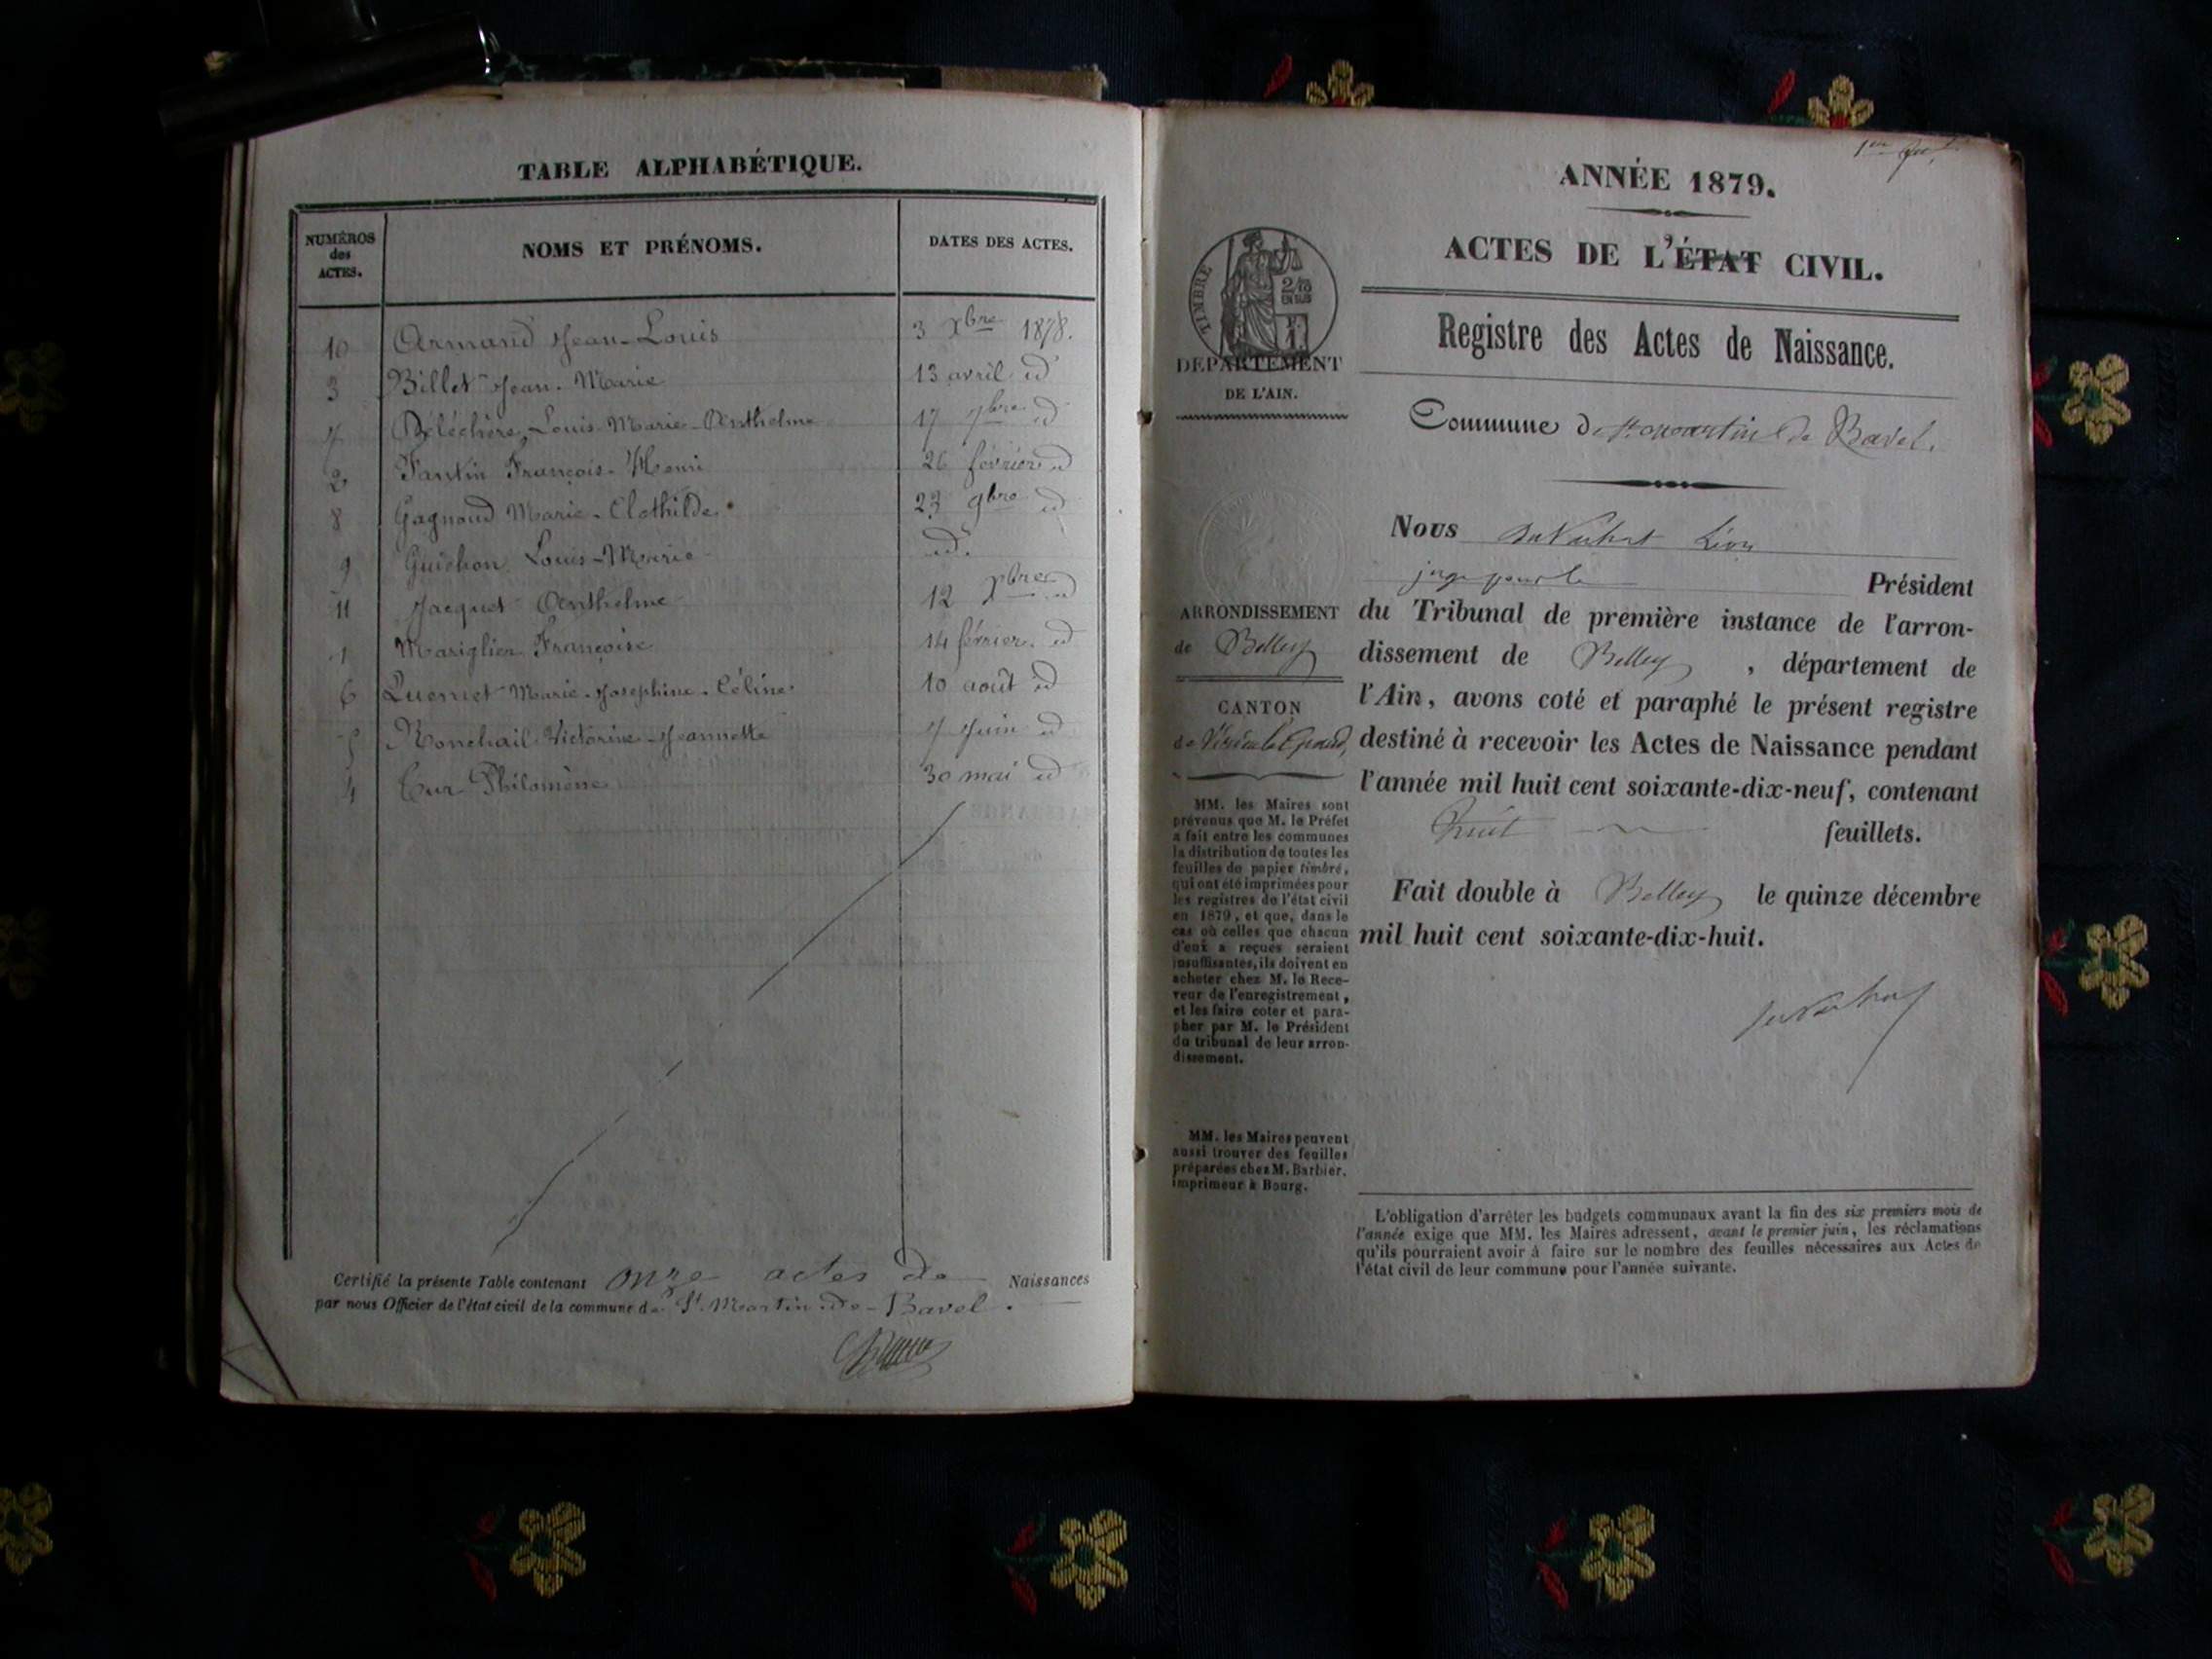 TABLE ALPHABÉTIQUE.
NUMÉROS
des
ACTES.
NOMS ET PRÉNOMS.
DATES DES ACTES.
10 Armand Jean-Louis 3 Xbre 1878.
3 Billet Jean-Marie 13 avril id
7 Béléchère, Louis-Marie-Anthelme 17 7bre id
2 Fantin François-Henri 26 février id
8 Gagnoud Marie-Clothilde 23 9bre id
9 Guichon Louis-Marie id.
11 Jacquet Anthelme 12 Xbre id
1 Mariglier Françoise 14 février. id
6 Marie-Josephine-Céline 10 août id
5 Ronchail Victorine-Jeannette 7 Juin id
4 Tur Philomène 30 mai id
Certifié la présente Table contenant onze actes de Naissances
par nous Officier de l'état civil de la commune de St. Martin-de-Bavel.
ANNÉE 1879.
ACTES DE L'ÉTAT CIVIL.
Registre des Actes de Naissance.
TIMBRE
DEPARTEMENT
DE L'AIN.
Commune de St martin de Bavel.
Nous Léon
Président
du Tribunal de première instance de l'arron-
dissement de Belley, département de
l'Ain, avons coté et paraphé le présent registre
destiné à recevoir les Actes de Naissance pendant
l'année mil huit cent soixante-dix-neuf, contenant
huit feuillets.
Fait double à Belley le quinze décembre
mil huit cent soixante-dix-huit.
ARRONDISSEMENT
de Belley
CANTON
de Virieu le Grand,
MM. les Maires sont
prévenus que M. le Préfet
a fait entre les communes
la distribution de toutes les
feuilles de papier timbré,
qui ont été imprimées pour
les registres de l'état civil
en 1879, et que, dans le
cas où celles que chacun
d'eux a reçues seraient
insuffisantes, ils doivent en
acheter chez M. le Rece-
veur de l'enregistrement,
et les faire coter et para-
pher par M. le Président
du tribunal de leur arron-
dissement.
MM. les Maires peuvent
aussi trouver des feuilles
préparées chez M. Barbier,
imprimeur à Bourg.
L'obligation d'arrêter les budgets communaux avant la fin des six premiers mois de
l'année exige que MM. les Maires adressent, avant le premier juin, les réclamations
qu'ils pourraient avoir à faire sur le nombre des feuilles nécessaires aux Actes de
l'état civil de leur commune pour l'année suivante.